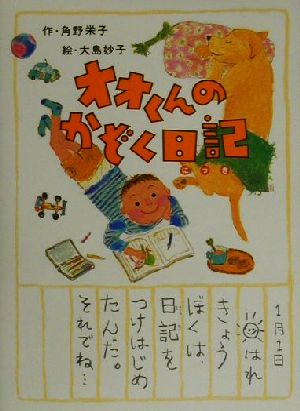 作・角野栄子
絵・大島妙子
オオくんの
かぞく日記
にっき
1月1日
はれ
きょう
ぼくは、
日記を
つけはじめ
たんだ。
それでね…